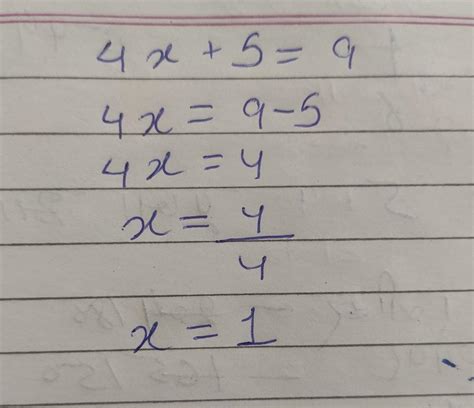 4x + 5 = 9
4x = 9-5
4x = 4
x = 4/4
x = 1